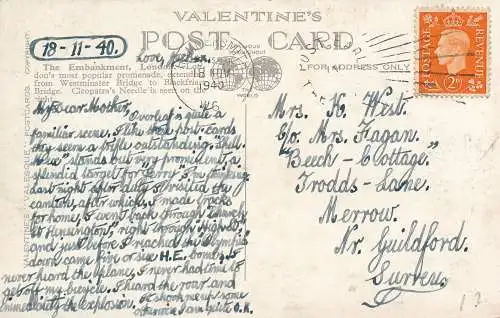 VALENTINE'S
POST CARD
FOR ADDRESS ONLY
18-11-40.
Love,
The Embankment, London
don's most popular promenade,
from Westminster Bridge to Blackfriars
Bridge. Cleopatra's Needle is seen on the
18 NOV
1940
My Dear Mother, Overleaf is quite a
familiar scene. I like these post-cards
they seem a trifle outstanding. "Shell
Mex" stands out very prominent, a
splendid target for Jerry
last night after duty I visited the
canteen, after which, I made tracks
for home, I went back through
to Kensington, right through High St.
and just before I reached the "Olympia"
down came five or six H.E. bombs, I
never heard the plane, I never had time to
get off my bicycle. I heard the roar and
immediately the explosion. It shook me up some
otherwise I am quite O.K.
Mrs. K. West.
C/o. Mrs. Fagan.
"Beech-Cottage"
Trodds-Lane.
Merrow.
Nr. Guildford.
Surrey.
POSTAGE
REVENUE
2D
VALENTINE'S "VALESQUE" POSTCARDS
13